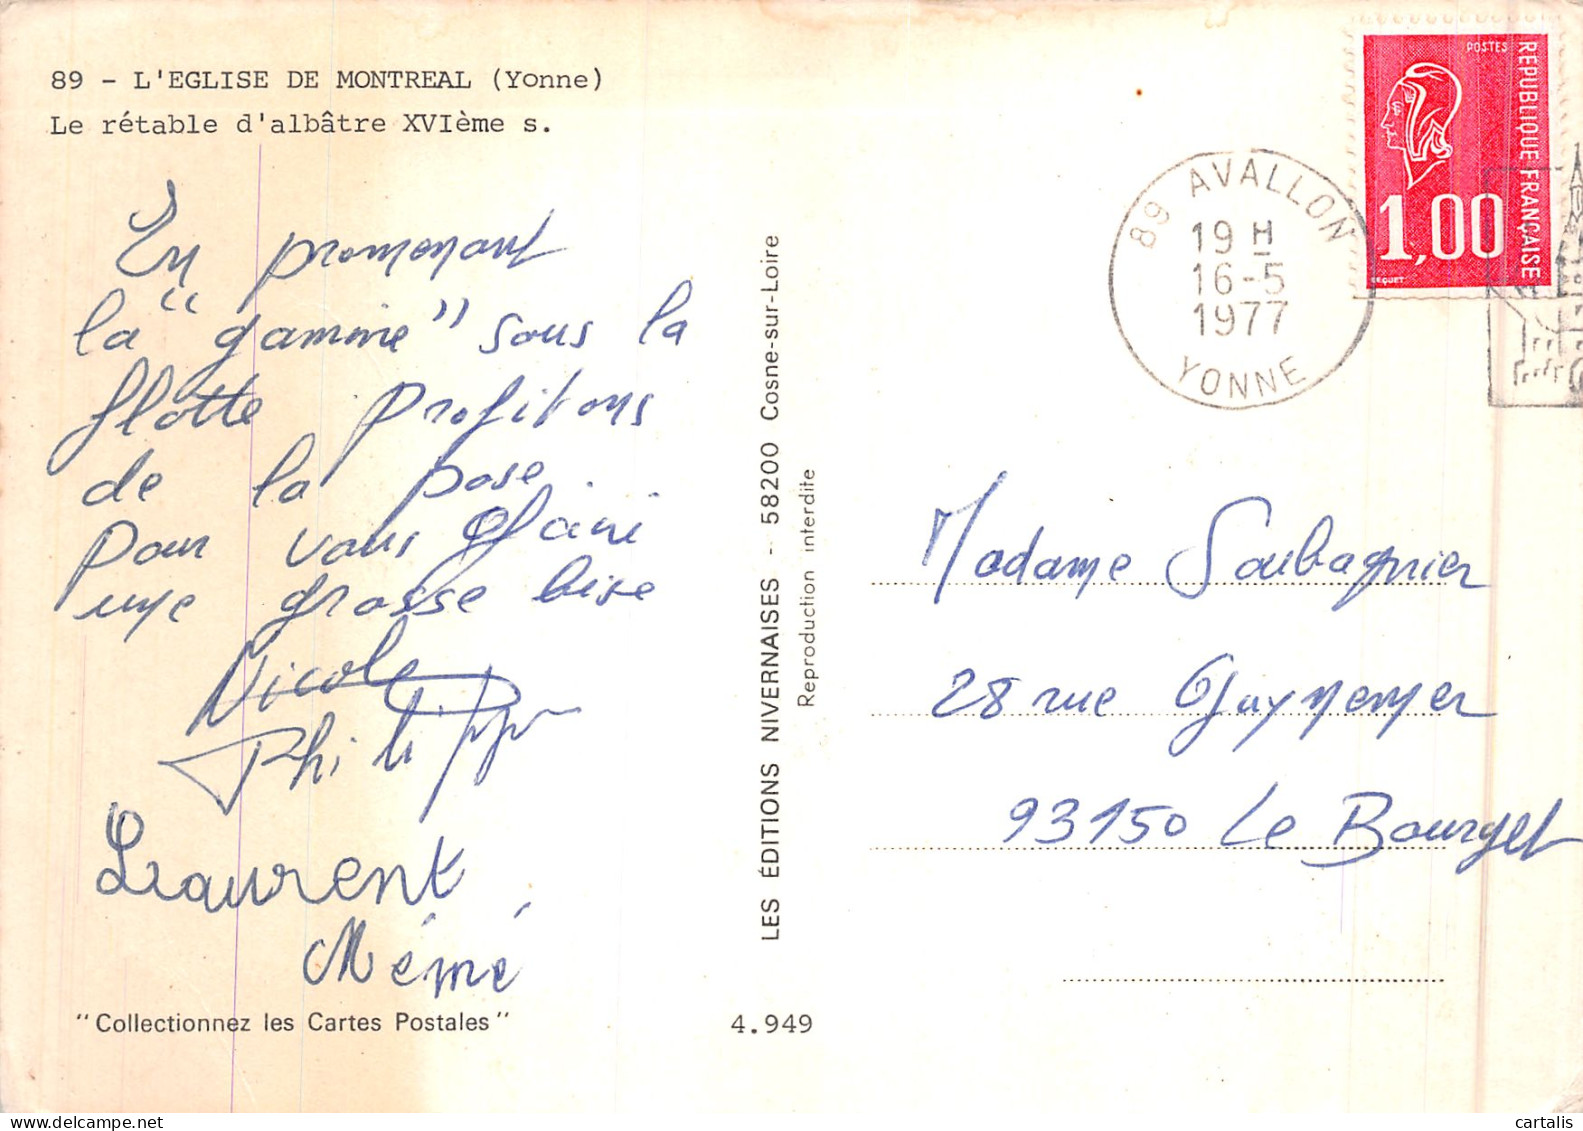 89 - L'EGLISE DE MONTREAL (Yonne)
Le rétable d'albâtre XVIème s.
En promenant
la "gamine" sous la
flotte profitons
de la pose
pour vous
une grosse bise
Nicole
Philippe
Laurent
Mémé
"Collectionnez les Cartes Postales"
4.949
LES ÉDITIONS NIVERNAISES - 58200 Cosne-sur-Loire
Reproduction interdite
89 AVALLON
19 H
16-5
1977
YONNE
POSTES
REPUBLIQUE FRANÇAISE
1,00
BEQUET
Madame Soubagnier
28 rue Guynemer
93150 Le Bourget
cartalis